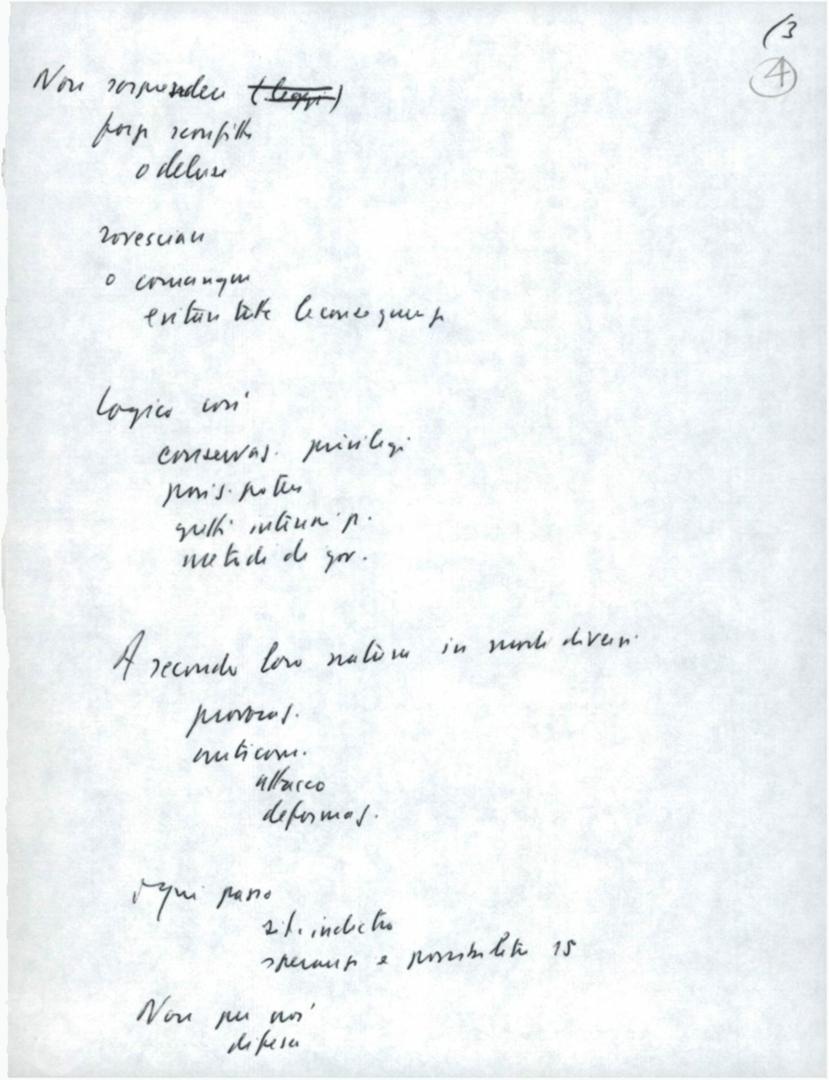 (3
4
Non sorprendere (leggi)
forze sconfitte
o deluse
rovesciare
o comunque
evitare tutte le conseguenze
Logico così
conservaz. privilegi
posiz. potere
quelli intern. p.
metodi di gov.
A secondo loro natura in modi diversi
provocaz.
anticom.
attacco
deformaz.
Ogni passo
indietro
speranze e possibilità 15
Non per noi
difesa